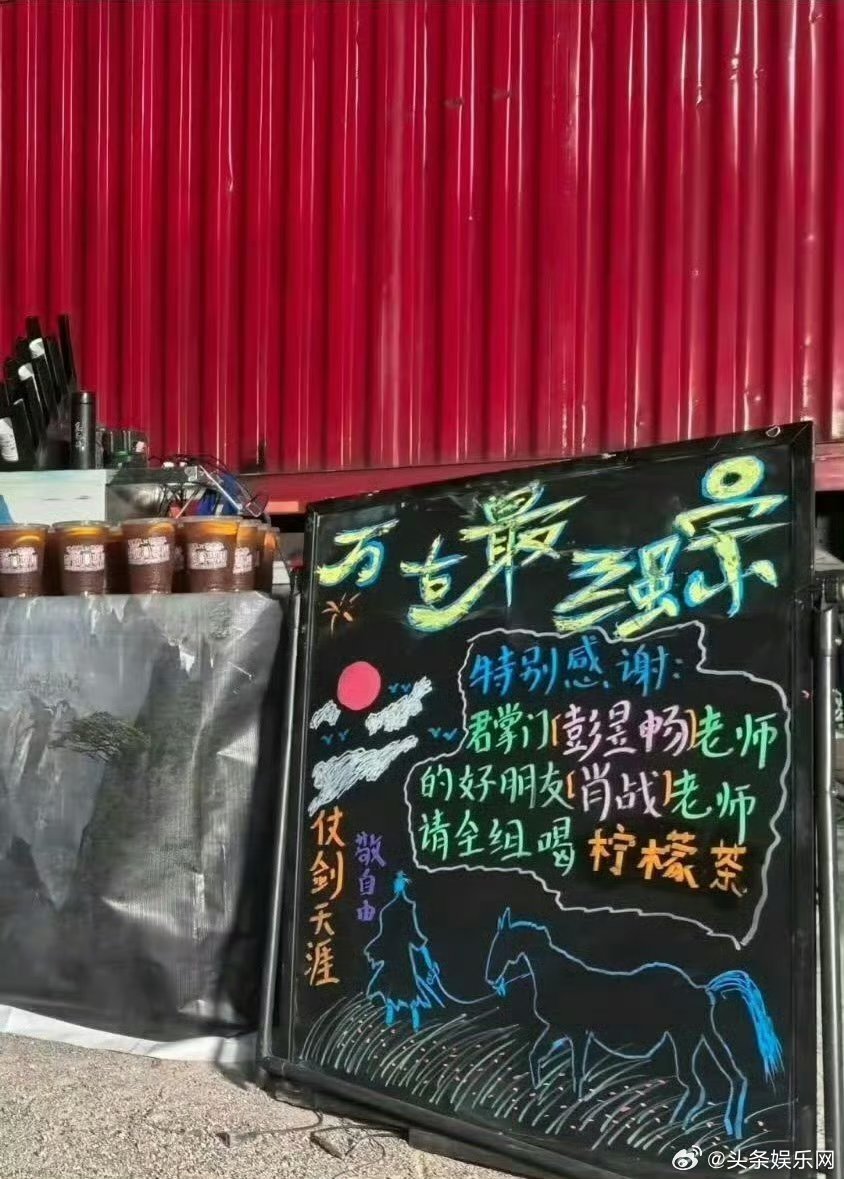 万古最强宗
特别感谢：
君掌门【彭昱畅】老师
的好朋友【肖战】老师
请全组喝柠檬茶
仗剑天涯
敬自由
@头条娱乐网